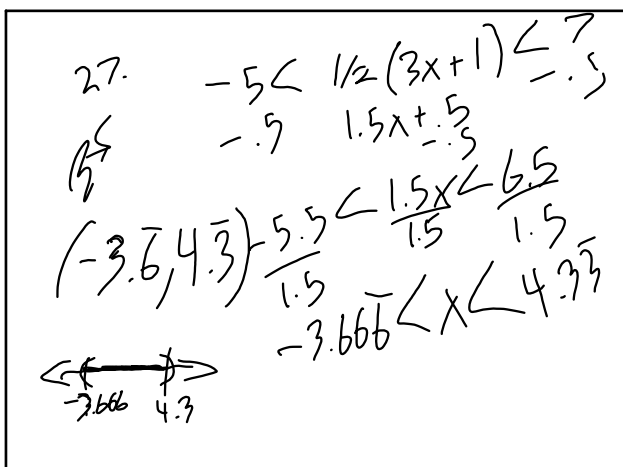 27. -5 < 1/2 (3x + 1) < 7
-.5 1.5x + .5 -.5
-.5
(-3.6̅, 4.3̅) -5.5/1.5 < 1.5x/1.5 < 6.5/1.5
-3.666̅ < x < 4.33̅
-3.666 4.3